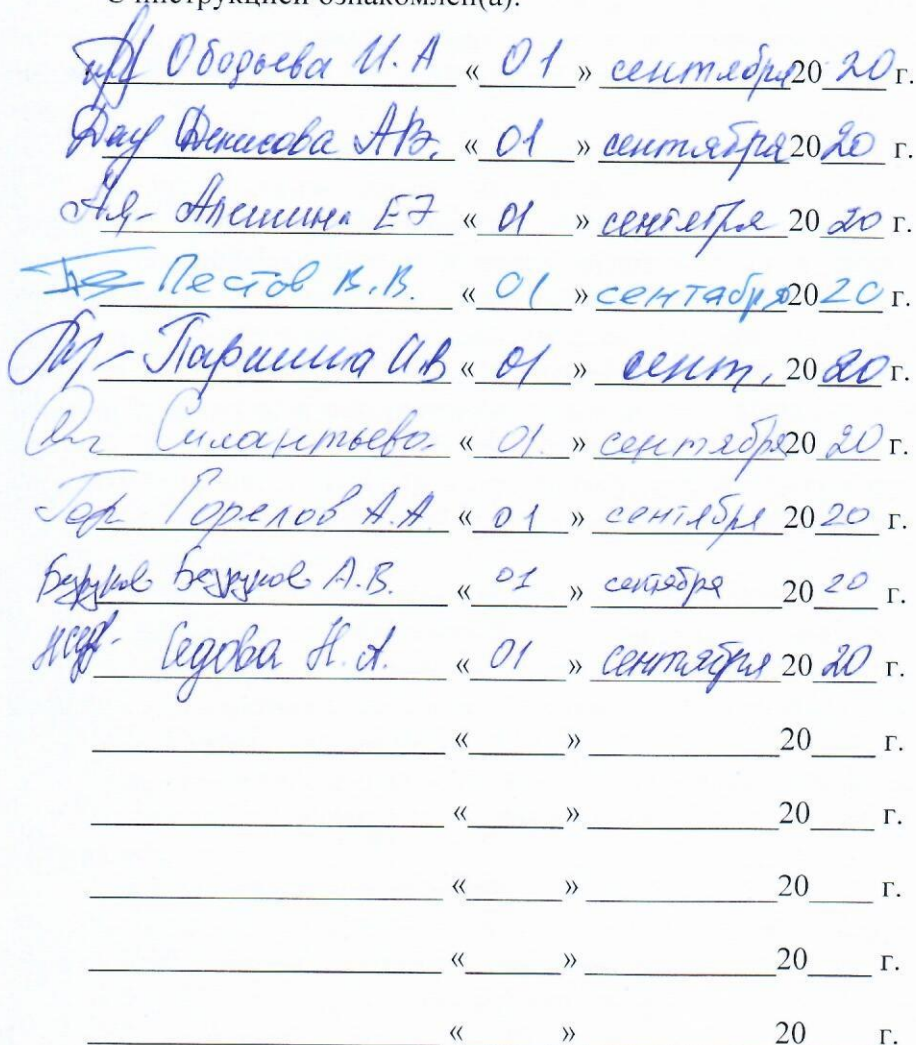 С инструкцией ознакомлен(а):
Ободьева И. А « 01 » сентября 20 20 г.
Денисова А.В. « 01 » сентября 20 20 г.
Алешина Е Э « 01 » сентября 20 20 г.
Пестов В.В. « 01 » сентября 20 20 г.
Паршина И В « 01 » сент. 20 20 г.
Силантьева « 01. » сентября 20 20 г.
Гор Горелов А.А « 01 » сентября 20 20 г.
Безруков Безруков А.В. « 01 » сентября 20 20 г.
Седова Н.А. « 01 » сентября 20 20 г.
« » 20 г.
« » 20 г.
« » 20 г.
« » 20 г.
« » 20 г.